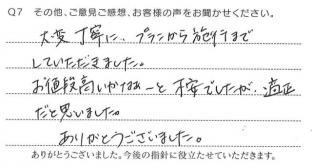 Q7 その他、ご意見ご感想、お客様の声をお聞かせください。
大変丁寧に、プランから施行まで
していただきました。
お値段高いかなぁーと不安でしたが、適正
だと思いました。
ありがとうございました。
ありがとうございました。今後の指針に役立たせていただきます。